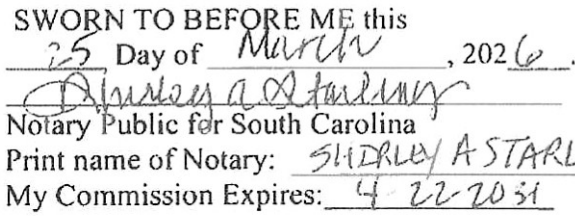 SWORN TO BEFORE ME this
25 Day of March, 2026.
Shirley A Starling
Notary Public for South Carolina
Print name of Notary: SHIRLEY A STARL
My Commission Expires: 4-22-2031